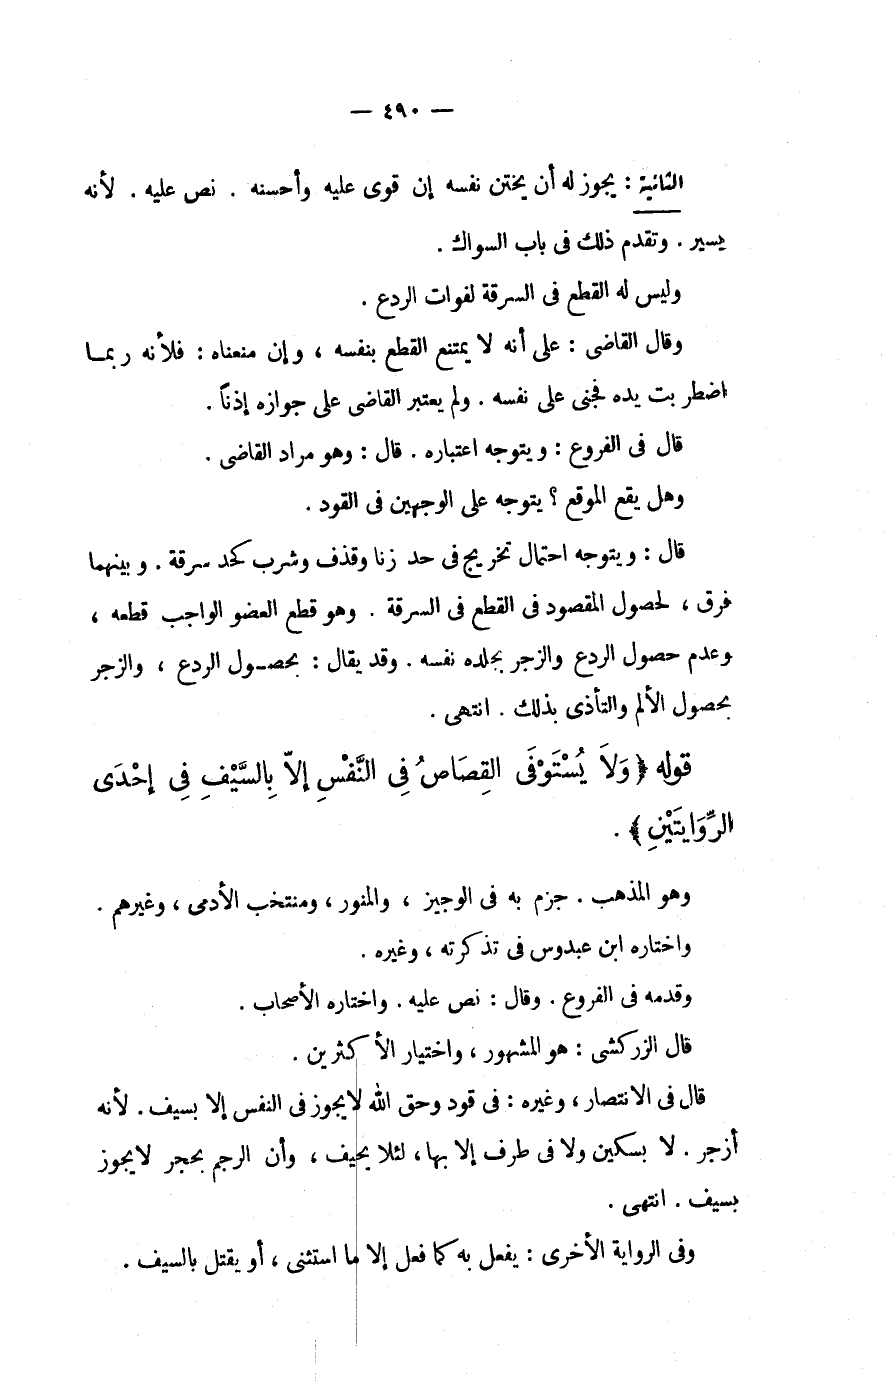 — ٤٩٠ —
الثانية : يجوز له أن يختن نفسه إن قوى عليه وأحسنه . نص عليه . لأنه
يسير . وتقدم ذلك فى باب السواك .
وليس له القطع فى السرقة لفوات الردع .
وقال القاضى : على أنه لا يمتنع القطع بنفسه ، وإن منعناه : فلأنه ربمـا
اضطربت يده فجنى على نفسه . ولم يعتبر القاضى على جوازه إذناً .
قال فى الفروع : ويتوجه اعتباره . قال : وهو مراد القاضى .
وهل يقع الموقع ؟ يتوجه على الوجهين فى القود .
قال : ويتوجه احتمال تخريج فى حد زنا وقذف وشرب كحد سرقة . وبينهما
فرق ، لحصول المقصود فى القطع فى السرقة . وهو قطع العضو الواجب قطعه ،
وعدم حصول الردع والزجر بجلده نفسه . وقد يقال : بحصـول الردع ، والزجر
بحصول الألم والتأذى بذلك . انتهى .
قوله ﴿ وَلاَ يُسْتَوْفَى القِصَاصُ فِى النَّفْسِ إلاّ بِالسَّيْفِ فِى إِحْدَى
الرِّوَايتَيْنِ ﴾ .
وهو المذهب . جزم به فى الوجيز ، والمنور ، ومنتخب الأدمى ، وغيرهم .
واختاره ابن عبدوس فى تذكرته ، وغيره .
وقدمه فى الفروع . وقال : نص عليه . واختاره الأصحاب .
قال الزركشى : هو المشهور ، واختيار الأكثرين .
قال فى الانتصار ، وغيره : فى قود وحق الله لايجوز فى النفس إلا بسيف . لأنه
أزجر . لا بسكين ولا فى طرف إلا بها ، لئلا يحيف ، وأن الرجم بحجر لايجوز
بسيف . انتهى .
وفى الرواية الأخرى : يفعل به كما فعل إلا ما استثنى ، أو يقتل بالسيف .